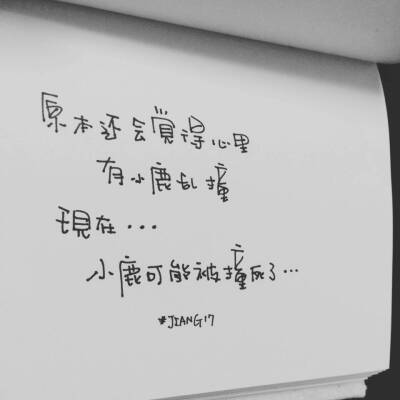 原本还会覺得心里
有小鹿乱撞
現在...
小鹿可能被撞死了...
#JIANG17